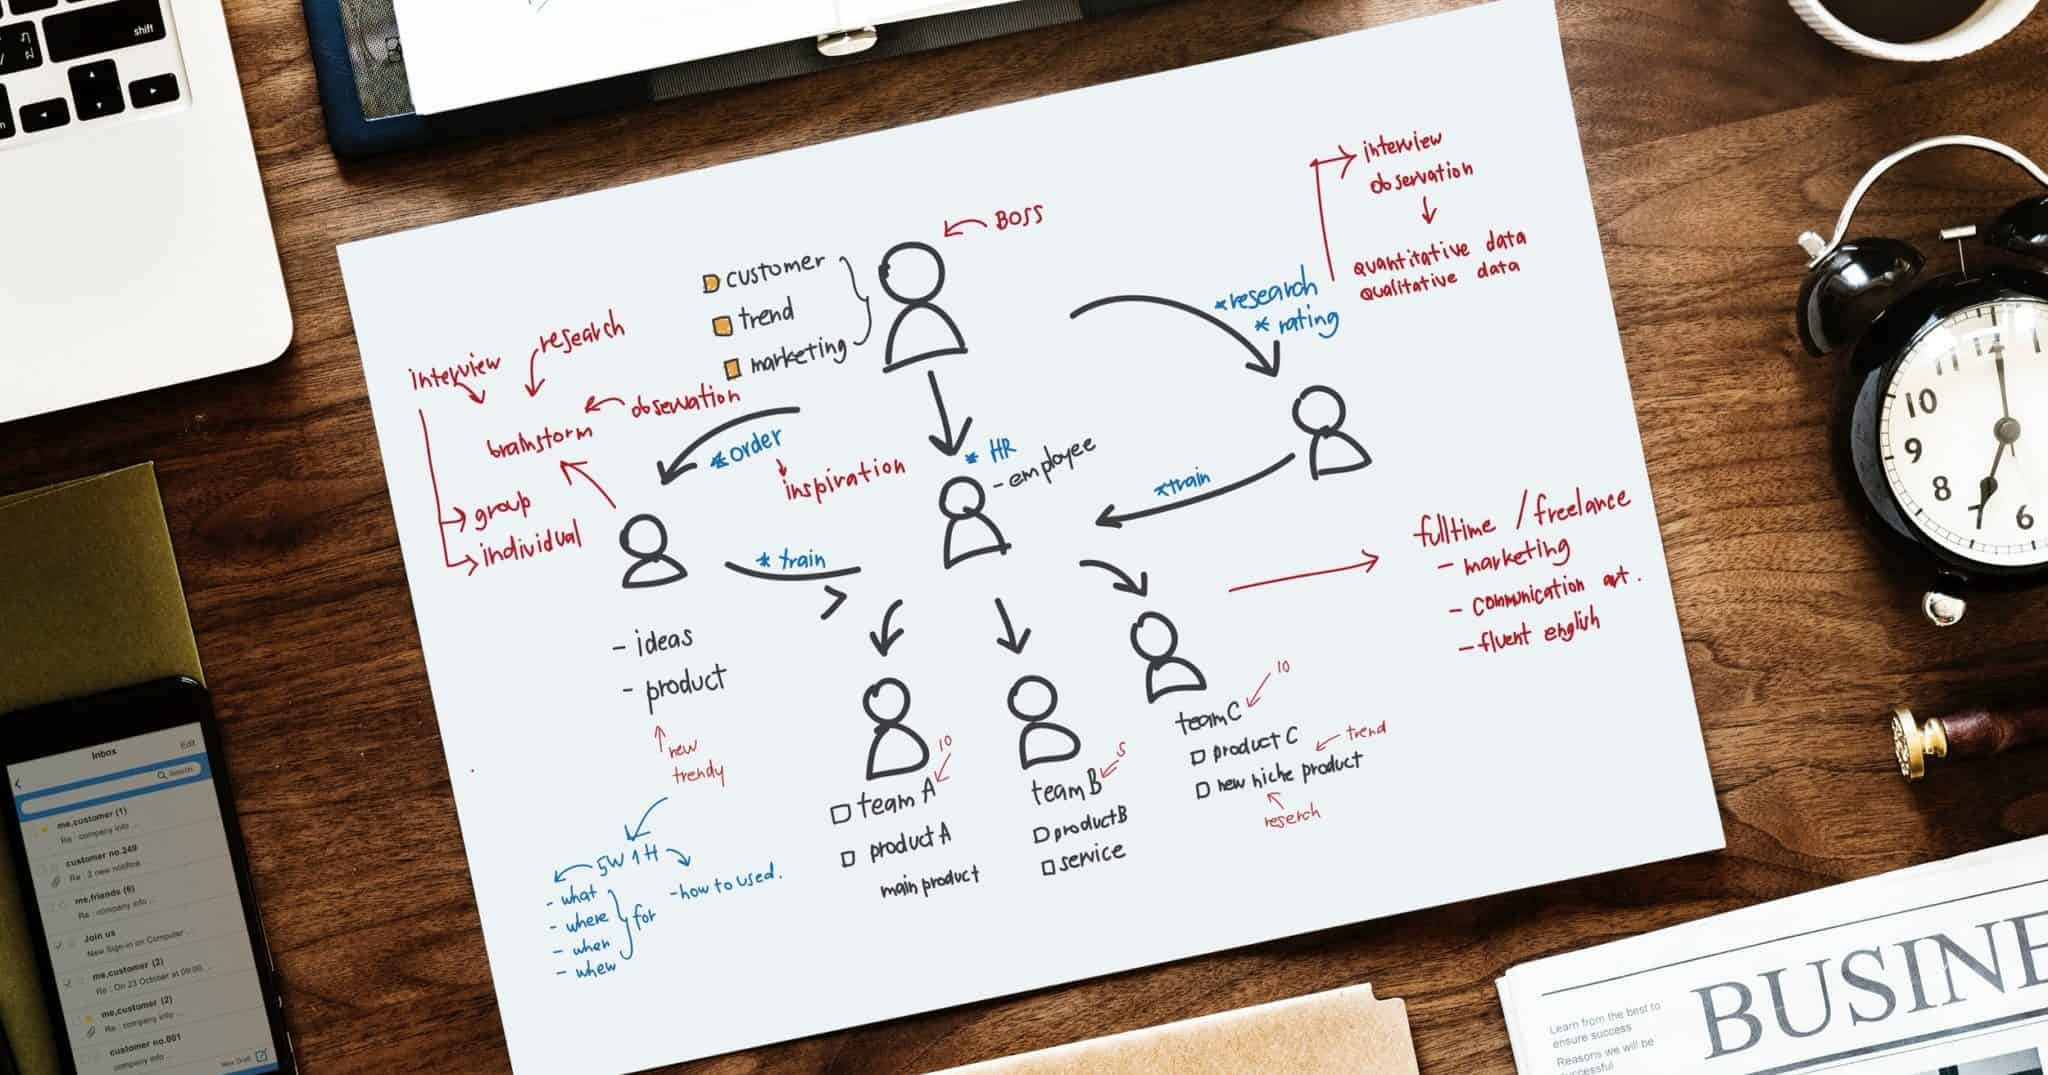 shift
BOSS
customer
trend
marketing
interview
observation
quantitative data
qualitative data
*research
* rating
research
interview
observation
brainstorm
group
individual
*order
inspiration
* HR
- employee
*train
* train
fulltime / freelance
- marketing
- communication art.
- fluent english
- ideas
- product
new
trendy
5W 1H
- what
- where
- when
- whew
for
- how to used.
10
team A
product A
main product
5
team B
product B
service
10
team C
product C
trend
new niche product
reserch
10
9
8
7
6
11
12
1
Inbox
Edit
Search
me,customer (1)
Re : company info ...
customer no.249
Re : 2 new notifice ..
me,friends (6)
Re : company info ...
Join us
New Sign-in on Computer ...
me,customer (2)
Re : On 23 October at 09:00, ...
me,customer (2)
Re : company info ...
customer no.001
company info ...
New Draft
BUSINE
Learn from the best to
ensure success
Reasons we will be
successful